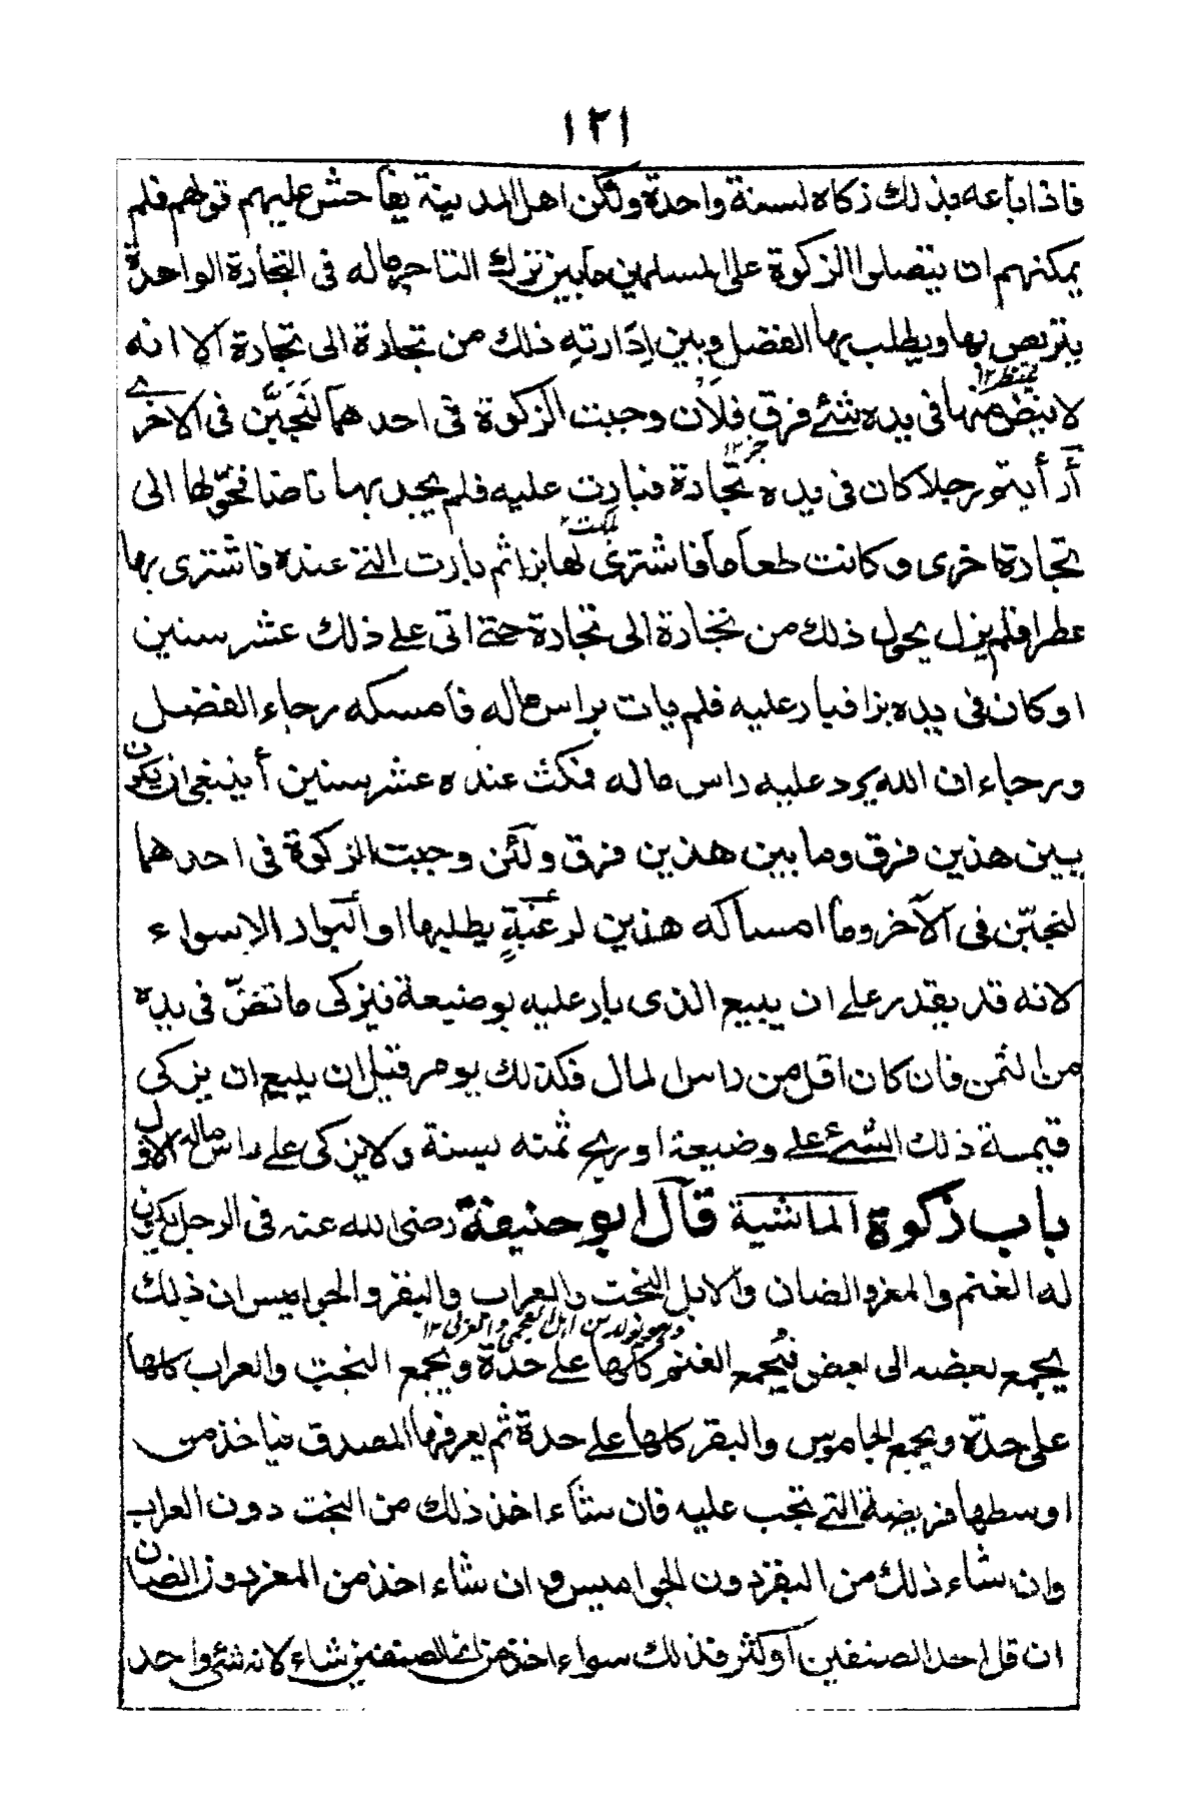 ١٢١
فاذا باعه فبذلك زكاه لسنة واحدة ولكن اهل المدينة يفاحش عليهم قولهم فلم
يمكنهم ان يتصلوا الزكوة على المسلمين ما بين ترك التاجر ماله فى التجارة الواحدة
يتربص بها ويطلب بها الفضل وبين إدَارتهِ ذلك من تجارة الى تجارة الا انه
لا ينض منها فى يده شئے فرق فلان وجبت الزكوة فى احدهما لَتَجِبَّن فى الاخرے
أرأيتم رجلا كان فى يده تجارة فبارت عليه فلم يجد بها ناضا فحوّلها الى
تجارة اخرى وكانت طعاما فاشترى لها بزا ثم بارت التے عنده فاشترى بها
عطرا فلم يزل يحول ذلك من تجارة الى تجارة حتے اتى علے ذلك عشر سنين
او كان فى يده بزا فبار عليه فلم يات براس ماله فامسكه رجاء الفضل
ورجاء ان الله يرد عليه راس ماله فمكث عنده عشر سنين أينبغى ان يكون
بين هذين فرق وما بين هذين فرق ولئن وجبت الزكوة فى احدهما
لتجبّن فى الآخر وما امساكه هذين لرغبةٍ يطلبها او البوار الا سواء
لانه قد يقدر علے ان يبيع الذى بار عليه بوضيعة فيزكى ما نضّ فى يده
من الثمن فان كان اقل من راس المال فكذلك يومر قبل ان يبيع ان يزكى
قيمة ذلك الشئے علے وضيعة او ربح ثمنه لسنة ولا يزكى علے راس ماله الاول
باب زكوة الماشية قال ابو حنيفة رضى الله عنه فى الرجل يكون
له الغنم والمعز والضان والابل البخت والعراب والبقر والجواميس ان ذلك
وهو تولد من ابل العجمى والعربى ١٢
يجمع بعضه الى بعض فيُجمع الغنم كلها علے حدة ويجمع البخت والعراب كلها
على حدة ويجمع الجاموس والبقر كلها علے حدة ثم يعرفها المصدق فياخذ من
اوسطها فريضة التے تجب عليه فان شاء اخذ ذلك من البخت دون العراب
وان شاء ذلك من البقر دون الجواميس وان شاء اخذ من المعز دون الضان
ان قل احد الصنفين أو كثر فذلك سواء اخذ من اى الصنفين شاء لانه شئ واحد